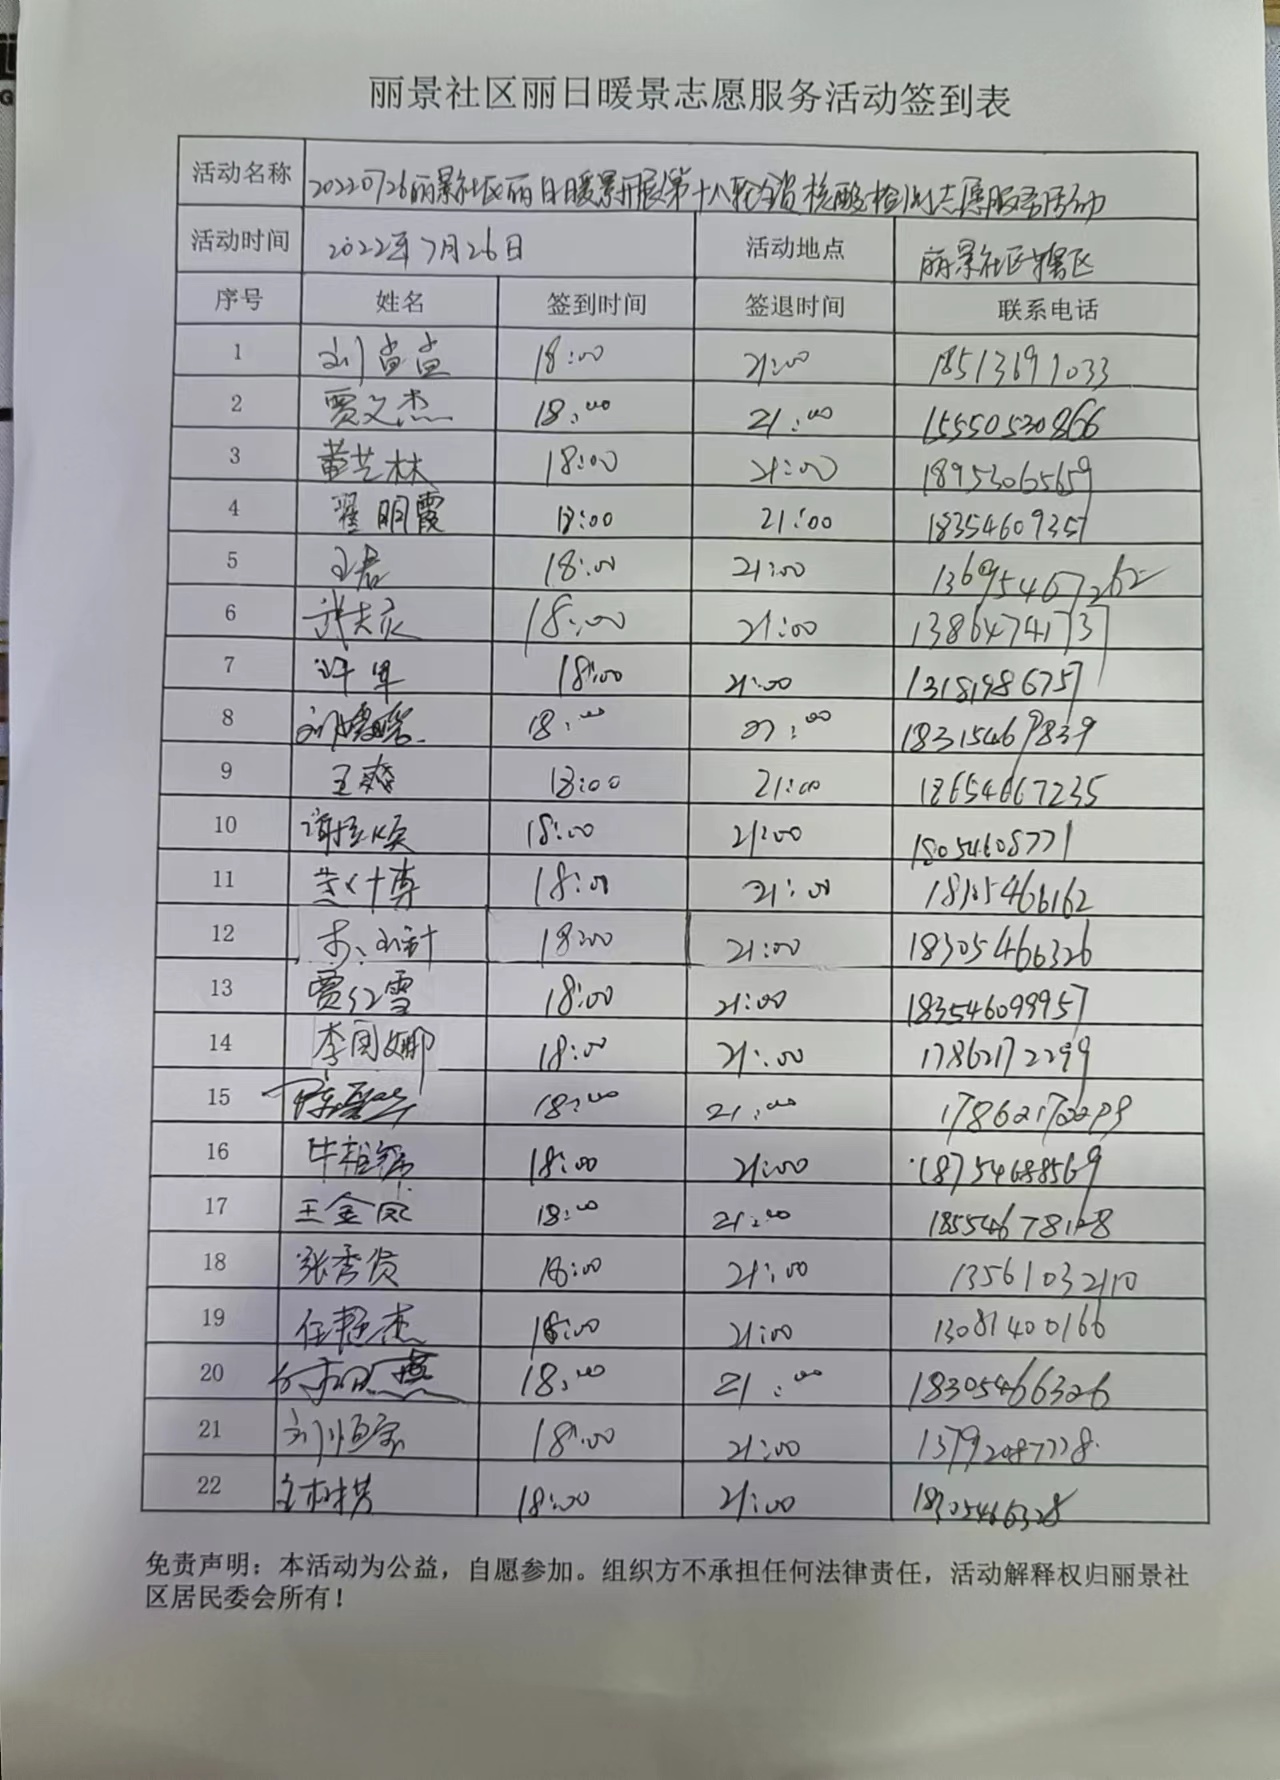 丽景社区丽日暖景志愿服务活动签到表
活动名称 20220726丽景社区丽日暖景开展第十八轮全员核酸检测志愿服务活动
活动时间 2022年7月26日 活动地点 丽景社区辖区
序号 姓名 签到时间 签退时间 联系电话
1 刘苗苗 18:00 21:00 18513691033
2 贾文杰 18:00 21:00 15550530866
3 黄芝林 18:00 21:00 18953065659
4 翟明霞 18:00 21:00 18354609357
5 王君 18:00 21:00 13695467262
6 18:00 21:00 13864741737
7 许军 18:00 21:00 13181986757
8 18:00 21:00 18315469839
9 王爽 18:00 21:00 18654667235
10 18:00 21:00 18054608771
11 18:00 21:00
12 18:00 21:00 18305466326
13 贾红雪 18:00 21:00 18354609957
14 李国娜 18:00 21:00 17862172299
15 18:00 21:00
16 18:00 21:00 18754688569
17 王金凤 18:00 21:00 18554678168
18 张秀贞 18:00 21:00 13561032110
19 任艳杰 18:00 21:00 13081400166
20 18:00 21:00 18305466326
21 刘恒宗 18:00 21:00 13792087728
22 18:00 21:00 18305466328
免责声明：本活动为公益，自愿参加。组织方不承担任何法律责任，活动解释权归丽景社
区居民委会所有！